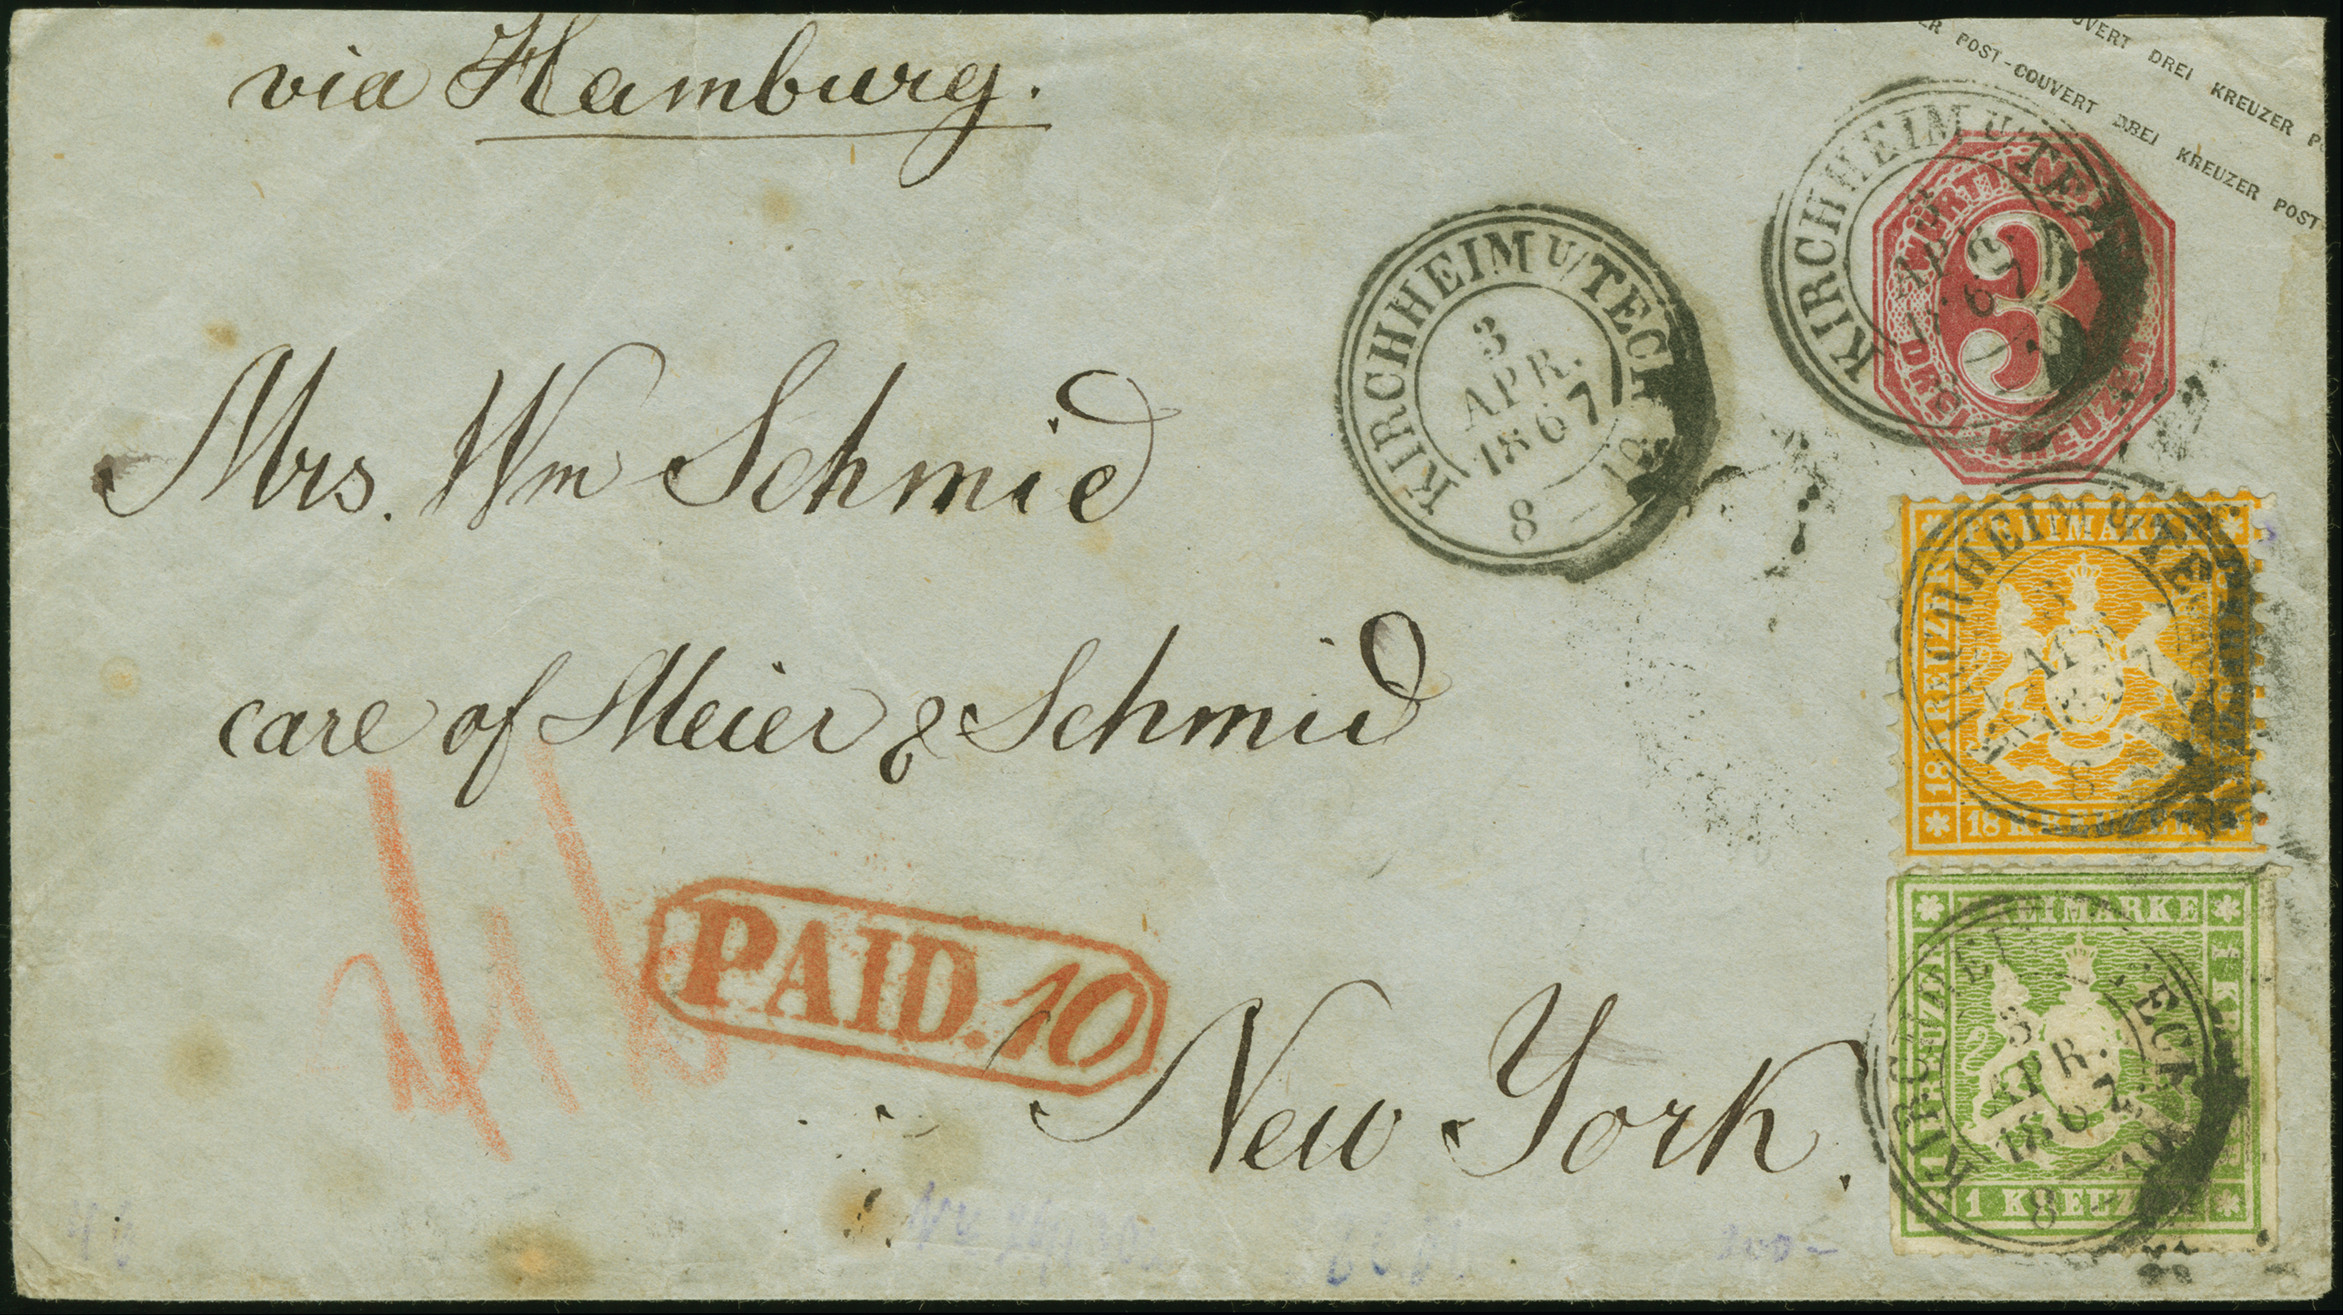 via Hamburg.
POST-COUVERT DREI KREUZER
POST-COUVERT DREI KREUZER POST
KIRCHHEIM U/TECK
3
APR.
1867
3
KREUZER
Mrs. Wm Schmid
KIRCHHEIM U/TECK
3
APR.
1867
8 – 10
care of Meier & Schmid
FREIMARKE
18 KREUZER
KIRCHHEIM U/TECK
8
PAID. 10
New York.
FREIMARKE
1 KREUZER
KIRCHHEIM U/TECK
3
APR.
1867
8 – 10